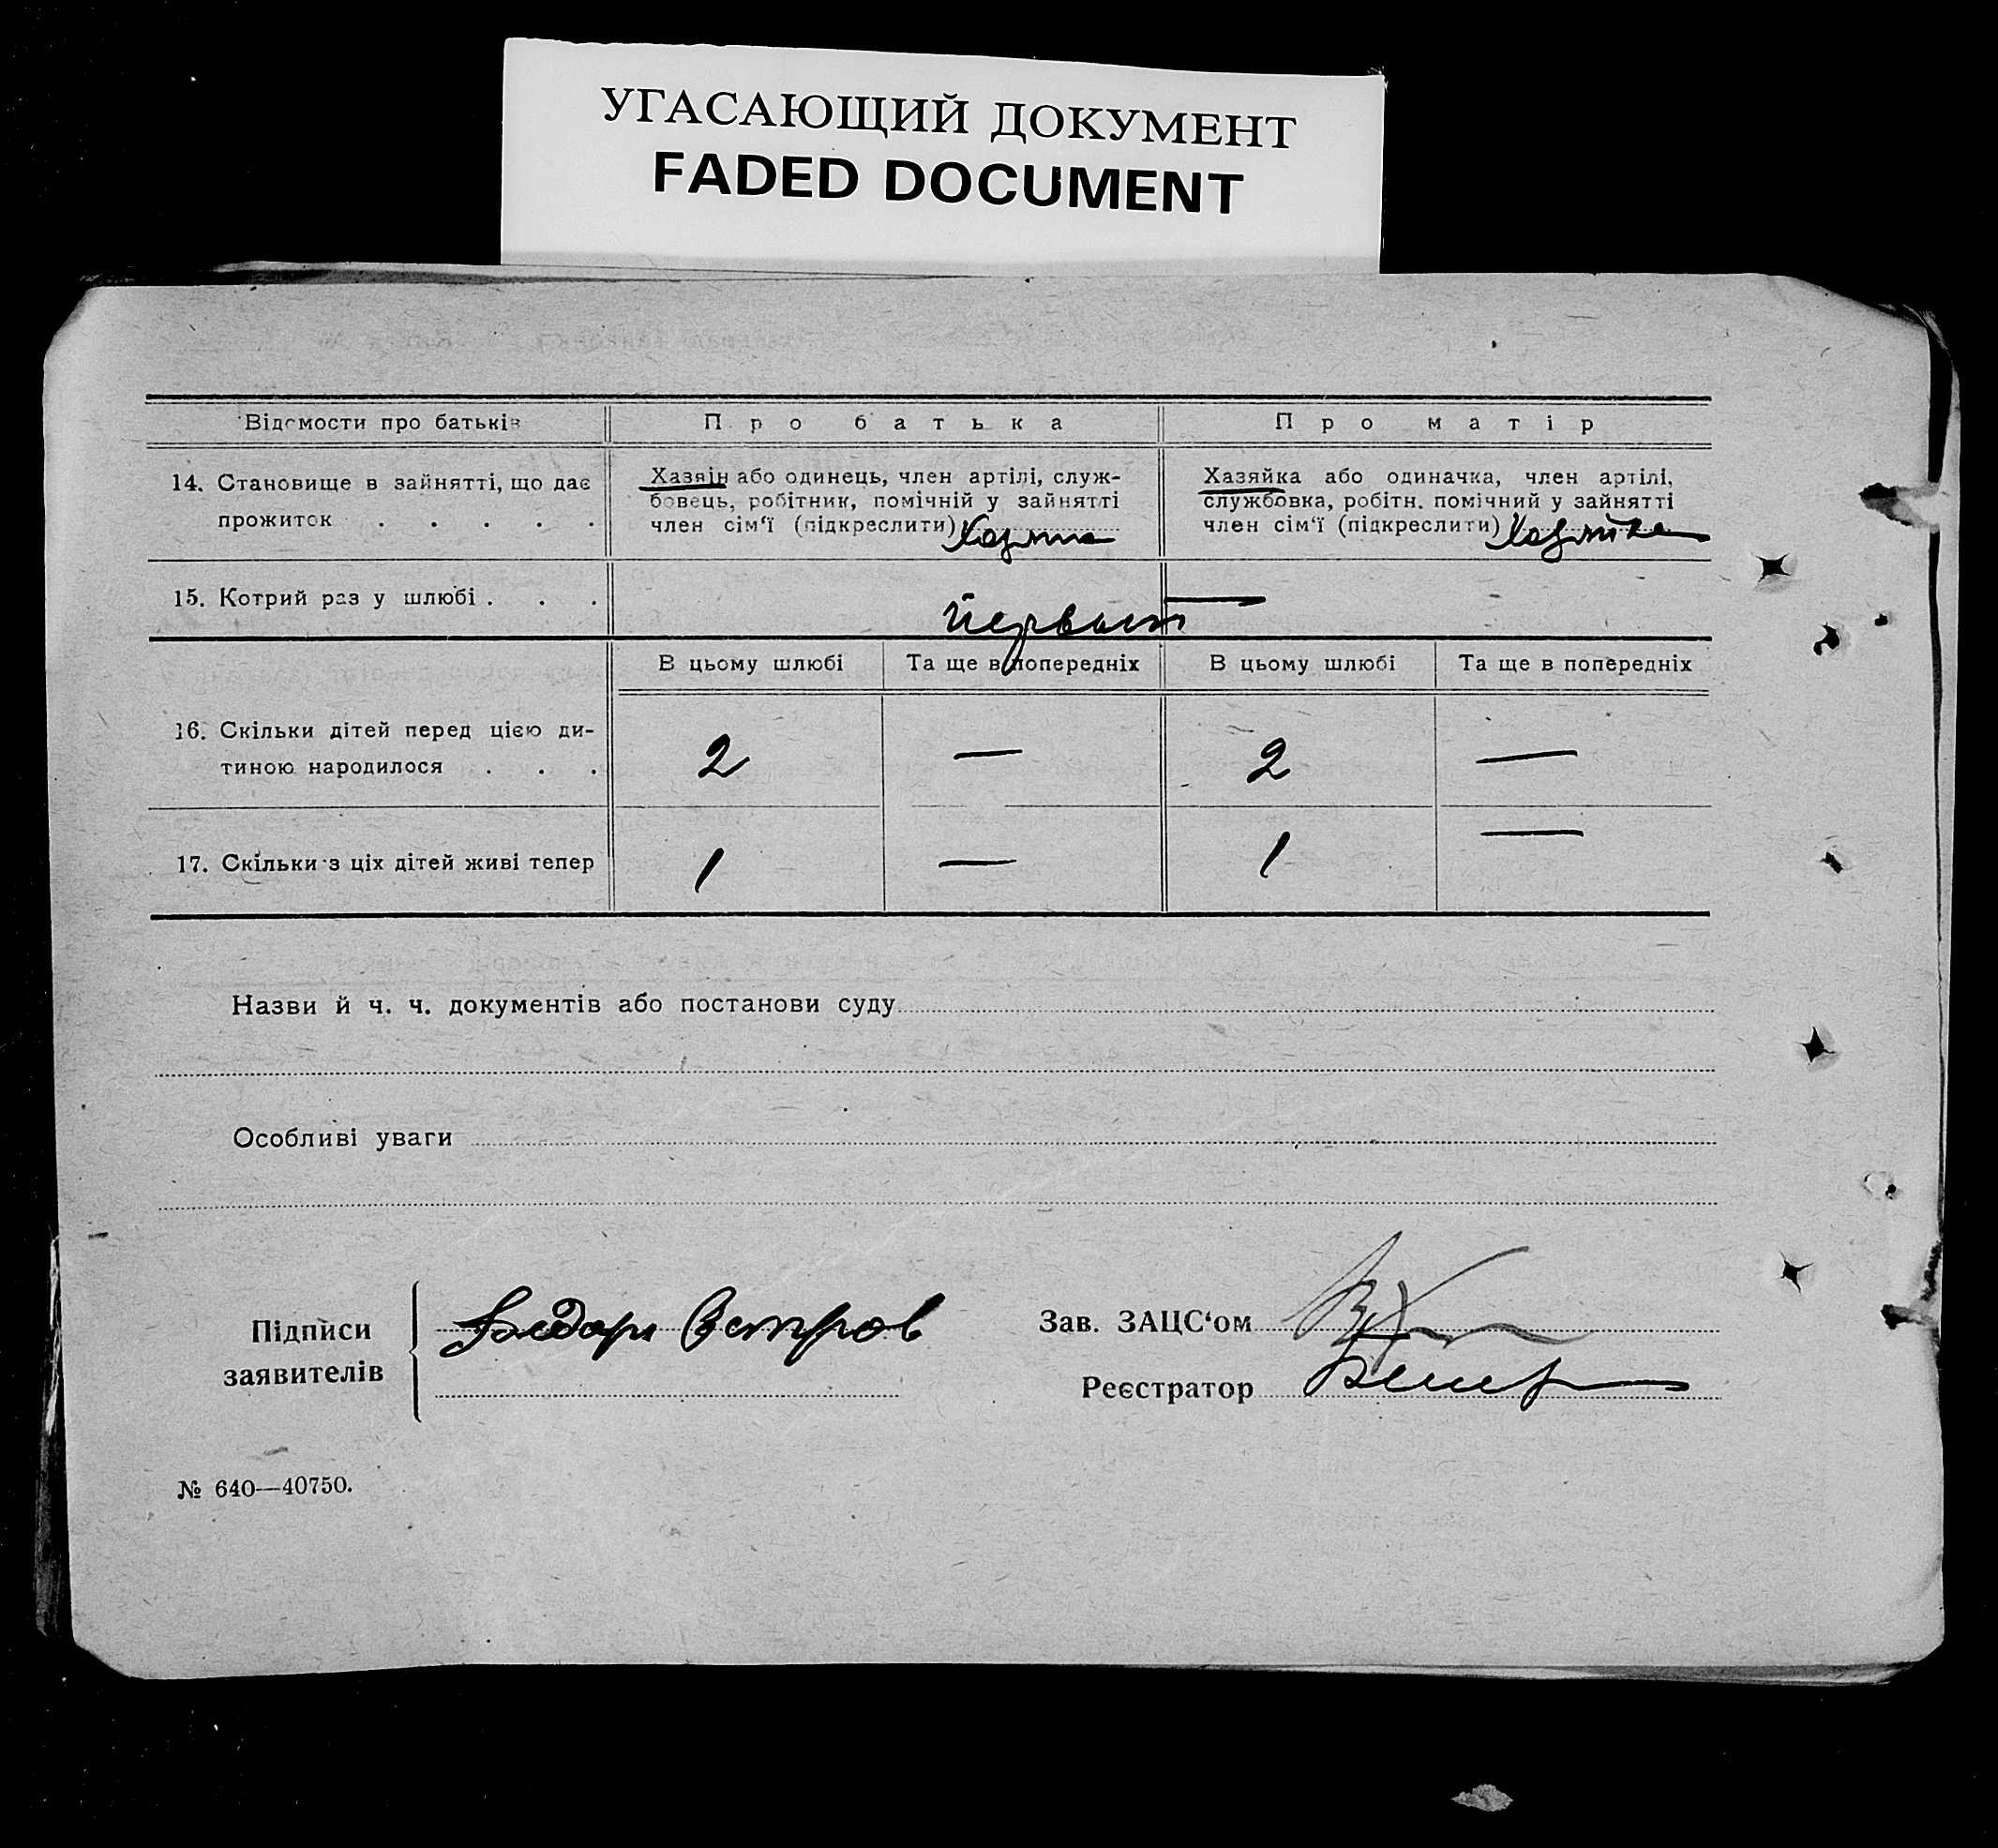 УГАСАЮЩИЙ ДОКУМЕНТ
FADED DOCUMENT
Відомости про батьків
Про батька
Про матір
14. Становище в зайнятті, що дає
прожиток . . . . .
Хазяїн або одинець, член артілі, служ-
бовець, робітник, помічній у зайнятті
член сім‘ї (підкреслити)
Хазяйка або одиначка, член артілі,
службовка, робітн. помічний у зайнятті
член сім‘ї (підкреслити) Хозяйка
15. Котрий раз у шлюбі . . .
первый —
В цьому шлюбі
Та ще в попередніх
В цьому шлюбі
Та ще в попередніх
16. Скільки дітей перед цією ди-
тиною народилося . . .
2 — 2 —
17. Скільки з ціх дітей живі тепер
1 — 1 —
Назви й ч. ч. документів або постанови суду
Особливі уваги
Підписи
заявителів
Зав. ЗАЦС‘ом
Реєстратор
№ 640—40750.